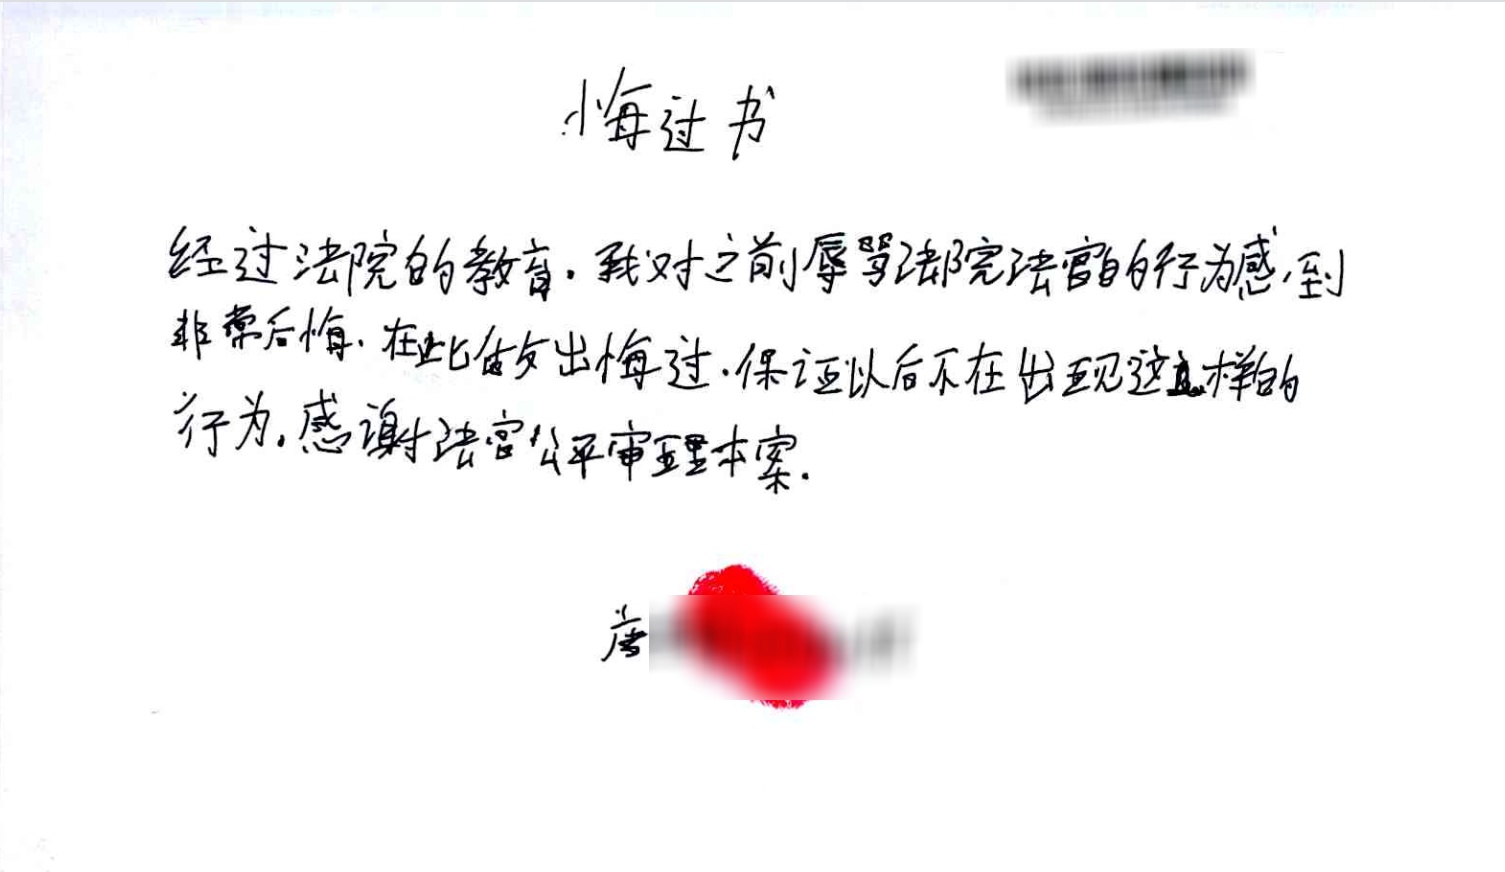 悔过书
经过法院的教育.我对之前辱骂法院法官的行为感到
非常后悔.在此做出悔过.保证以后不在出现这样的
行为.感谢法官公平审理本案.
唐